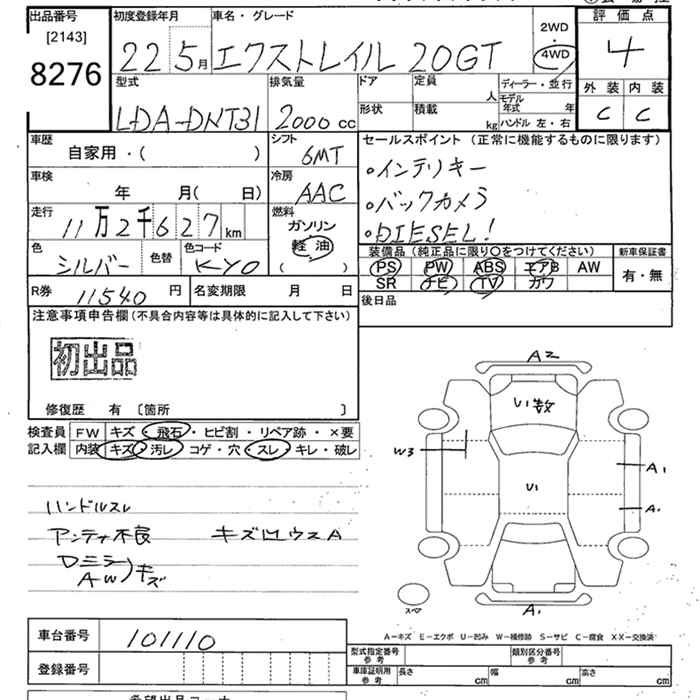 出品番号
[2143]
8276
初度登録年月
22 5月
車名・グレード
エクストレイル 20GT
2WD
4WD
評価点
4
外装 内装
C C
型式
LDA-DNT31
排気量
2000 cc
ドア
形状
定員
人
積載
kg
ディーラー・並行
モデル年式 年
ハンドル 左・右
車歴
自家用・( )
シフト
6MT
セールスポイント (正常に機能するものに限ります)
・インテリキー
・バックカメラ
・DIESEL!
車検
年 月( 日)
冷房
AAC
走行
11万2千627km
燃料
ガソリン
軽油
( )
色
シルバー
色替
色コード
KY0
装備品 (純正品に限り〇をつけてください)
新車保証書
PS PW ABS エアB AW
SR ナビ TV カワ
有・無
R券
11540 円
名変期限 月 日
後日品
注意事項申告欄(不具合内容等は具体的に記入して下さい)
初出品
修復歴 有 〔箇所 〕
検査員
記入欄
FW キズ・飛石・ヒビ割・リペア跡・×要
内装 キズ・汚レ・コゲ・穴・スレ・キレ・破レ
ハンドルスレ
アンテナ不良 キズ凹ウスA
Dミラー
AW
キズ
A2
U1数
W3
U1
A1
A1
A1
スペア
A−キズ E−エクボ U−凹み W−補修跡 S−サビ C−腐食 XX−交換済
車台番号
101110
登録番号
型式指定番号
参考
類別区分番号
参考
車庫証明用
参考
長さ cm 幅 cm 高さ cm